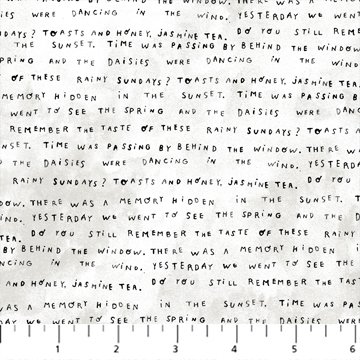 WERE DANCING IN THE WIND. YESTERDAY WE WENT TO SEE THE SPRING
DAYS? TOASTS AND HONEY, JASMINE TEA. DO YOU STILL REMEMBER
THE SUNSET. TIME WAS PASSING BY BEHIND THE WINDOW.
SPRING AND THE DAISIES WERE DANCING IN THE WIND.
OF THESE RAINY SUNDAYS? TOASTS AND HONEY, JASMINE TEA.
MEMORY HIDDEN IN THE SUNSET. TIME WAS PASSING B
WENT TO SEE THE SPRING AND THE DAISIES WERE DANC
REMEMBER THE TASTE OF THESE RAINY SUNDAYS? TOASTS
SUNSET. TIME WAS PASSING BY BEHIND THE WINDOW. THERE W
THE DAISIES WERE DANCING IN THE WIND. YESTERD
RAINY SUNDAYS? TOASTS AND HONEY, JASMINE TEA. DO YOU
DOW. THERE WAS A MEMORY HIDDEN IN THE SUNSET. T
WIND. YESTERDAY WE WENT TO SEE THE SPRING AND THE D
TEA. DO YOU STILL REMEMBER THE TASTE OF THESE RAIN
BY BEHIND THE WINDOW. THERE WAS A MEMORY HIDDEN
NCING IN THE WIND. YESTERDAY WE WENT TO SEE THE
AND HONEY, JASMINE TEA. DO YOU STILL REMEMBER THE TAST
WAS A MEMORY HIDDEN IN THE SUNSET. TIME WAS PA
RDAY WE WENT TO SEE THE SPRING AND THE DAISIES WERE
1 2 3 4 5 6